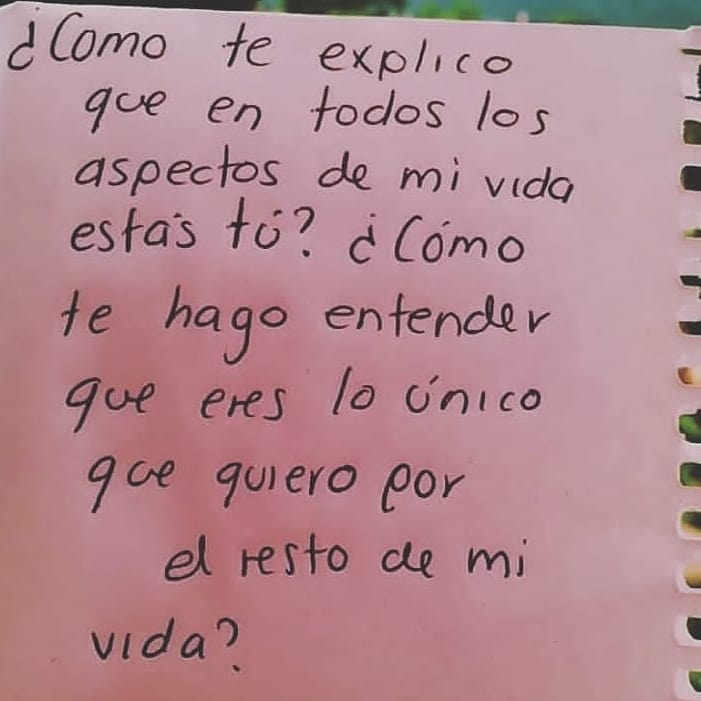 ¿Como te explico
que en todos los
aspectos de mi vida
estás tú? ¿Cómo
te hago entender
que eres lo único
que quiero por
el resto de mi
vida?